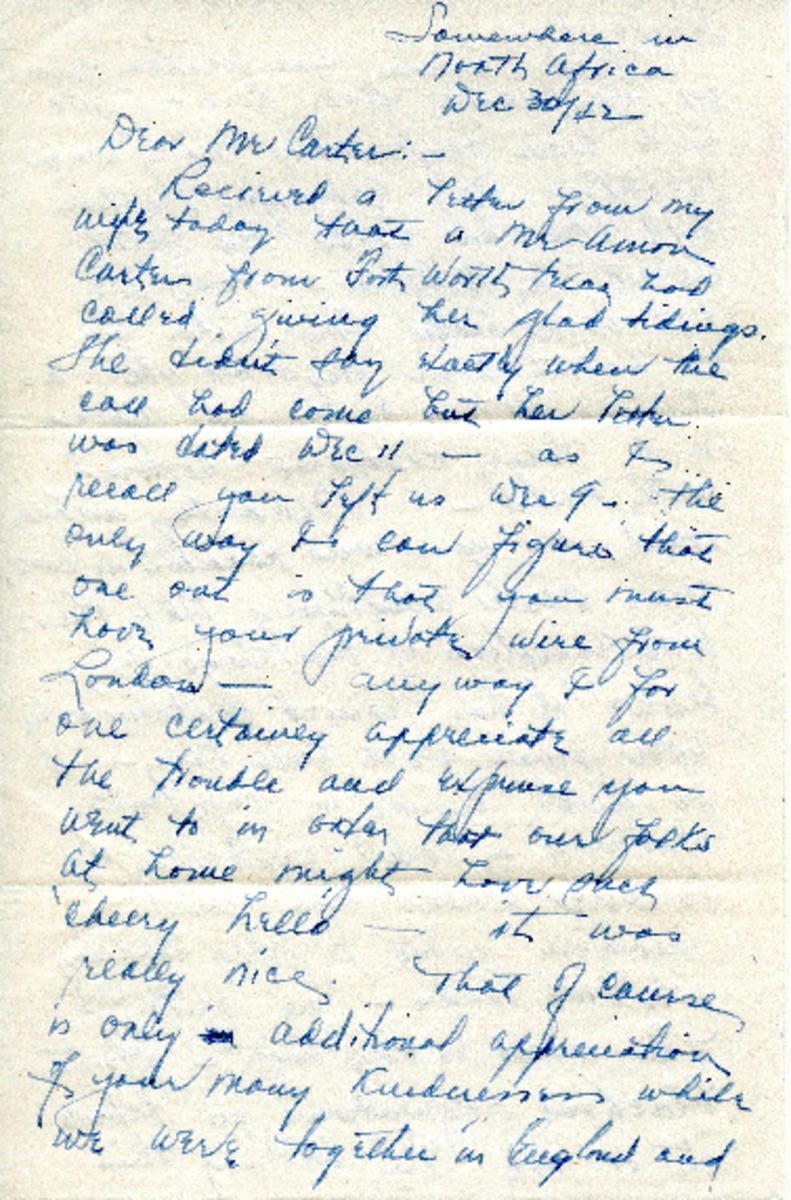 Somewhere in
North Africa
Dec 30/42
Dear Mr Carter:-
Recieved a letter from my
wife today that a Mr Amon
Carter from Fort Worth Texas had
called giving her glad tidings.
She didn't say exactly when the
call had come but her letter
was dated Dec 11 — as I
recall you left us Dec 9 - the
only way I can figure that
one out is that you must
have your private wire from
London — anyway I for
one certainly appreciate all
the trouble and expense you
went to in order that our folks
at home might have such
cheery hello — it was
really nice. That of course
is only additional appreciation
of your many kindnesses while
we were together in England and